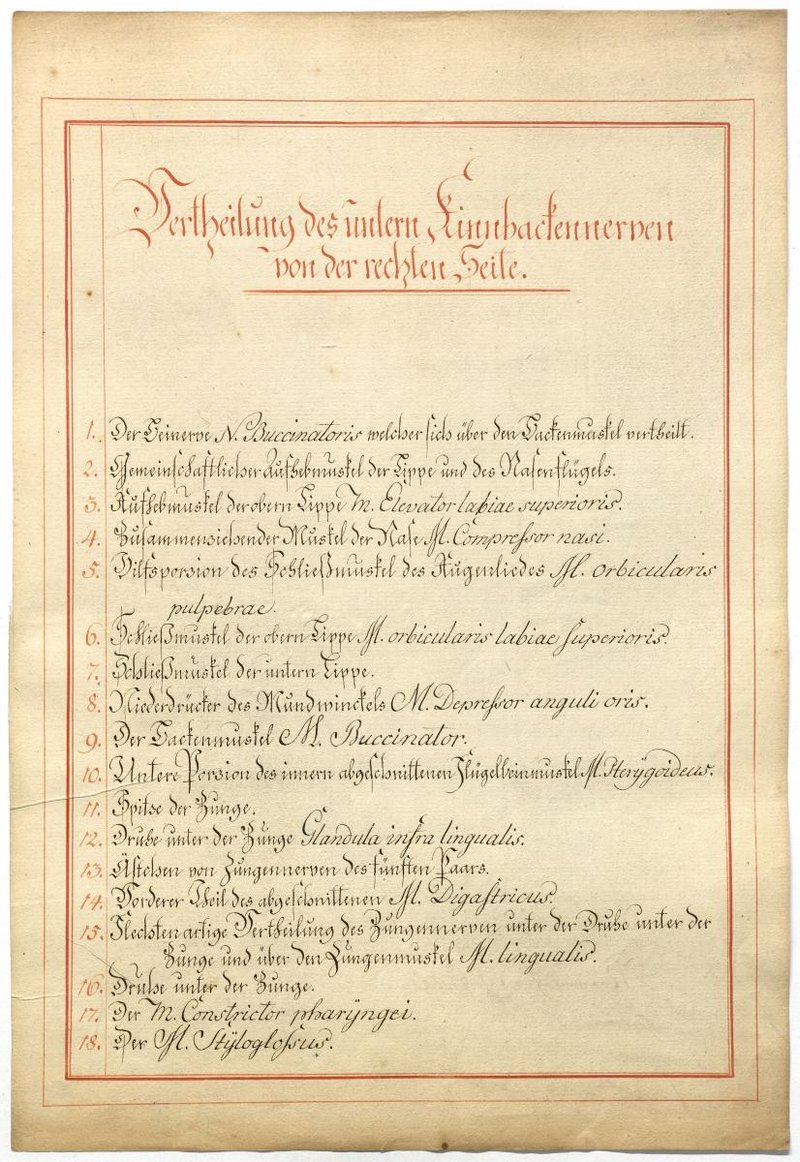 Vertheilung des untern Kinnbackennerven
von der rechten Seite.
1. Der Beinerve N. Buccinatoris welcher sich über den Backenmuskel vertheilt.
2. Gemeinschaftlicher Aufhebmuskel der Lippe und des Nasenflügels.
3. Aufhebmuskel der obern Lippe M. Elevator labiae superioris.
4. Zusammenziehender Muskel der Nase M. Compressor nasi.
5. Hilfsporzion des Schließmuskel des Augenliedes M. orbicularis
pulpebrae.
6. Schließmuskel der obern Lippe M. orbicularis labiae superioris.
7. Schließmuskel der untern Lippe.
8. Niederdrücker des Mundwinckels M. Depressor anguli oris.
9. Der Backenmuskel M. Buccinator.
10. Untere Porzion des innern abgeschnittenen Flügelbeinmuskel M. Pterÿgoideus.
11. Spitze der Zunge.
12. Druhse unter der Zunge Glandula infra lingualis.
13. Ästchen von Zungennerven des fünften Paars.
14. Vorderer Theil des abgeschnittenen M. Digastricus.
15. Flechtenartige Vertheilung des Zungennerven unter der Druhse unter der
Zunge und über den Zungenmuskel M. lingualis.
16. Druhse unter der Zunge.
17. Der M. Constrictor pharÿngei.
18. Der M. Stÿloglossus.